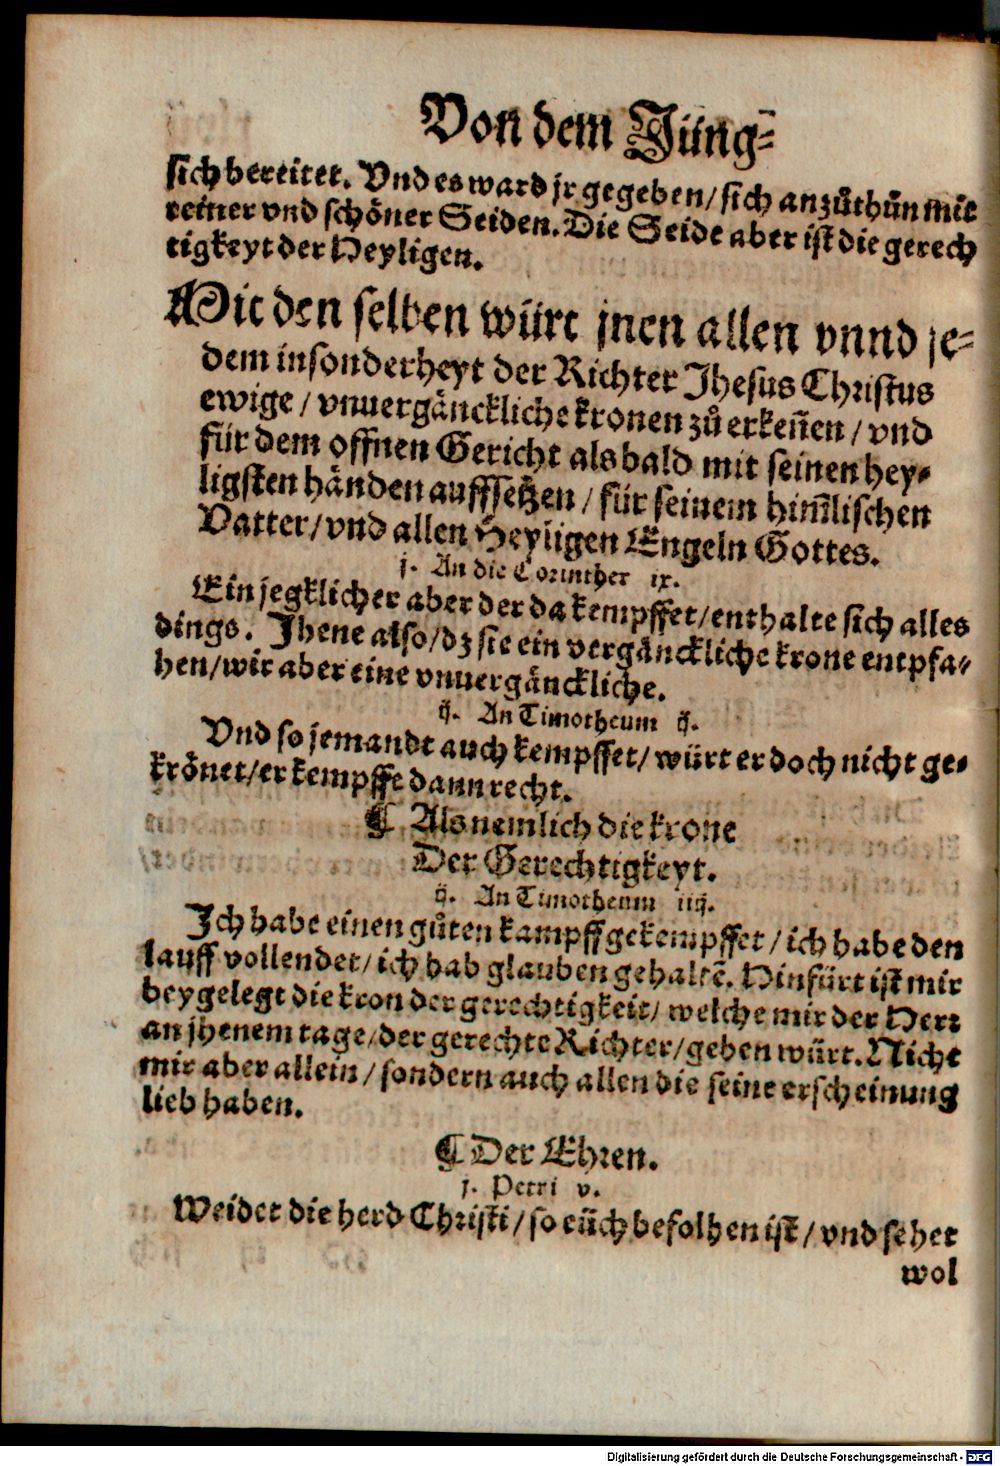 Von dem Jüng⸗
sich bereitet. Vnd es ward jr gegeben/ sich anzůthůn mit
reiner vnd schöner Seiden. Die Seide aber ist die gerech
tigkeyt der Heyligen.
Mit den selben würt jnen allen vnnd je⸗
dem insonderheyt der Richter Jhesus Christus
ewige/ vnuergänckliche kronen zů erkeñen/ vnd
für dem offnen Gericht als bald mit seinen hey⸗
ligsten händen auffsetzen/ für seinem him̃lischen
Vatter/ vnd allen Heyligen Engeln Gottes.
j. An die Corinther ix.
Ein jegklicher aber der da kempffet/ enthalte sich alles
dings. Jhene also/ dz sie ein vergänckliche krone entpfa⸗
hen/ wir aber eine vnuergänckliche.
ij. An Timotheum ij.
Vnd so jemandt auch kempffet/ würt er doch nicht ge⸗
krönet/ er kempffe dann recht.
¶ Als nemlich die krone
Der Gerechtigkeyt.
ij. An Timotheum iiij.
Ich habe einen gůten kampff gekempffet/ ich habe den
lauff vollendet/ ich hab glauben gehaltē. Hinfürt ist mir
beygelegt die kron der gerechtigkeit/ welche mir der Herr
an jhenem tage/ der gerechte Richter/ geben würt. Nicht
mir aber allein/ sondern auch allen die seine erscheinung
lieb haben.
¶ Der Ehren.
j. Petri v.
Weidet die herd Christi/ so eüch befolhen ist/ vnd sehet
wol
Digitalisierung gefördert durch die Deutsche Forschungsgemeinschaft - DFG